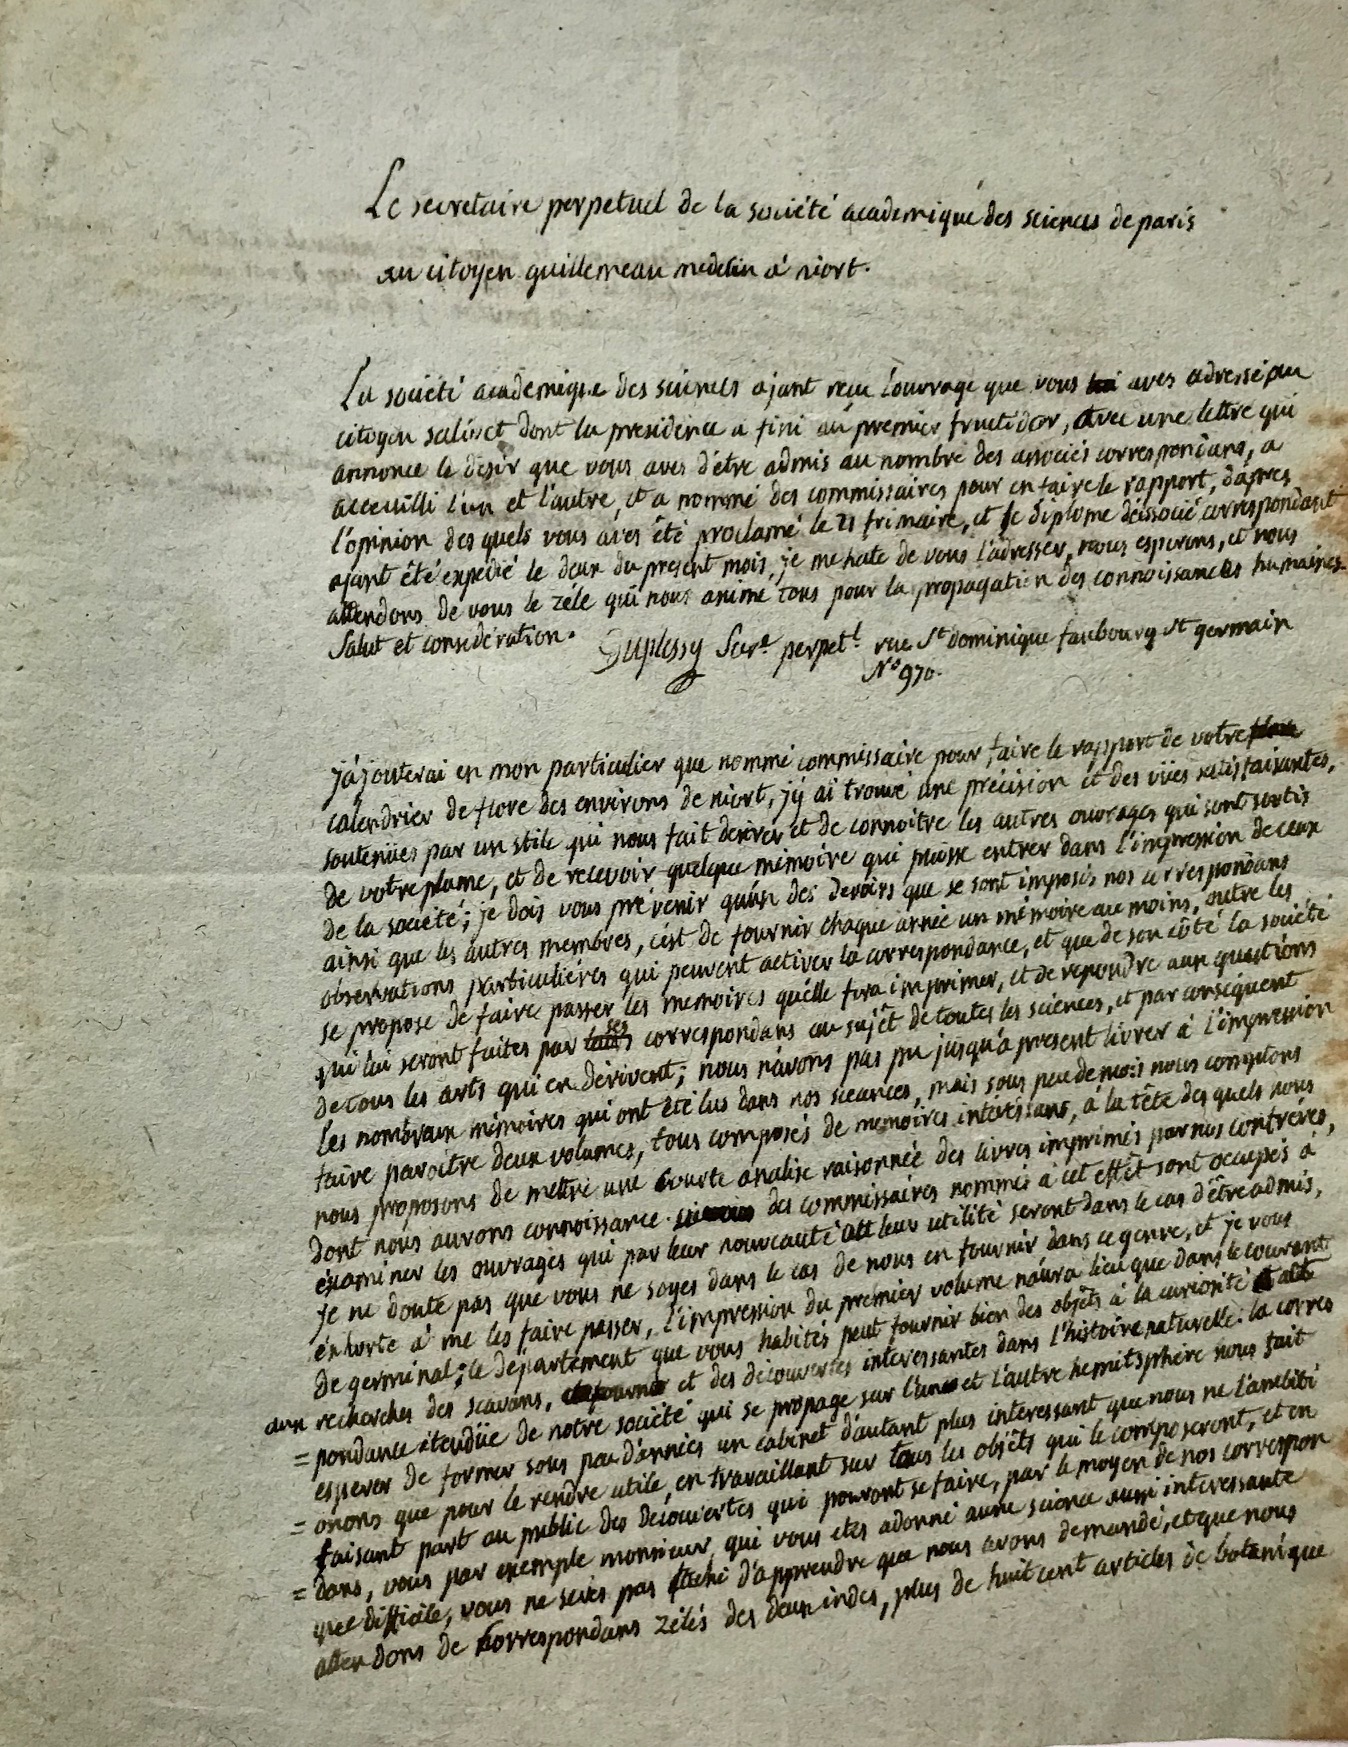 Le secretaire perpetuel de la société academique des sciences de paris
au citoyen guillemeau medecin à niort.
La societé academique des sciences ajant reçu l'ouvrage que vous aves adressé au
citoyen salivet dont la presidence a fini au premier fructidor, avec une lettre qui
annonce le desir que vous aves d'être admis au nombre des associés correspondans, a
acceuilli l'un et l'autre, et a nommé des commissaires pour en faire le rapport, d'apres
l'opinion des quels vous aves été proclamé le 21 frimaire, et le diplome d'associé correspondant
ajant été expedié le deux du present mois, je me hate de vous l'adresser, nous esperons, et nous
attendons de vous le zele qui nous anime tous pour la propagation des connoissances humaines.
Salut et considération. Duplessy Secre. perpetl. rue St dominique faubourg St germain
No 970.
j'ajouterai en mon particulier que nommé commissaire pour faire le rapport de votre
calendrier de flore des environs de niort, j'y ai trouvé une précision et des vües satisfaisantes,
soutenües par un stile qui nous fait desirer et de connoitre les autres ouvrages qui sont sortis
de votre plume, et de recevoir quelque mémoire qui puisse entrer dans l'impression de ceux
de la societé; je dois vous prévenir qu'un des devoirs que se sont imposés nos correspondans
ainsi que les autres membres, c'est de fournir chaque année un mémoire au moins, outre les
observations particulières qui peuvent activer la correspondance, et que de son côté la société
se propose de faire passer les memoires qu'elle fera imprimer, et de repondre aux questions
qui lui seront faites par ses correspondans au sujet de toutes les sciences, et par conséquent
de tous les arts qui en dérivent; nous n'avons pas pu jusqu'à present livrer à l'impression
les nombreux mémoires qui ont été lus dans nos sceances, mais sous peu de mois nous comptons
faire paroitre deux volumes, tous composés de memoires intéressans, à la tête des quels nous
nous proposons de mettre une courte analise raisonnée des livres imprimés par nos confréres,
dont nous aurons connoissance. des commissaires nommés à cet effet sont occupés à
éxaminer les ouvrages qui par leur nouveauté et leur utilité seront dans le cas d'être admis,
je ne doute pas que vous ne soyes dans le cas de nous en fournir dans ce genre, et je vous
éxhorte à me les faire passer, l'impression du premier volume n'aura lieu que dans le courant
de germinal; le département que vous habités peut fournir bien des objêts à la curiosité et
aux recherches des scavans, et des découvertes intéressantes dans l'histoire naturelle: la corres
= pondance étendüe de notre société qui se propage sur l'un et l'autre hemitsphère nous fait
esperer de former sous peu d'années un cabinet d'autant plus intéressant que nous ne l'ambiti
= onons que pour le rendre utile, en travaillant sur tous les objêts qui le composeront, et en
faisant part au public des découvertes qui pouront se faire, par le moyen de nos correspon
= dans, vous par exemple monsieur, qui vous etes adonné a une science aussi interessante
que difficile, vous ne serés pas faché d'apprendre que nous avons demandé, et que nous
attendons de correspondans zélés des deux indes, plus de huit cent articles de botanique